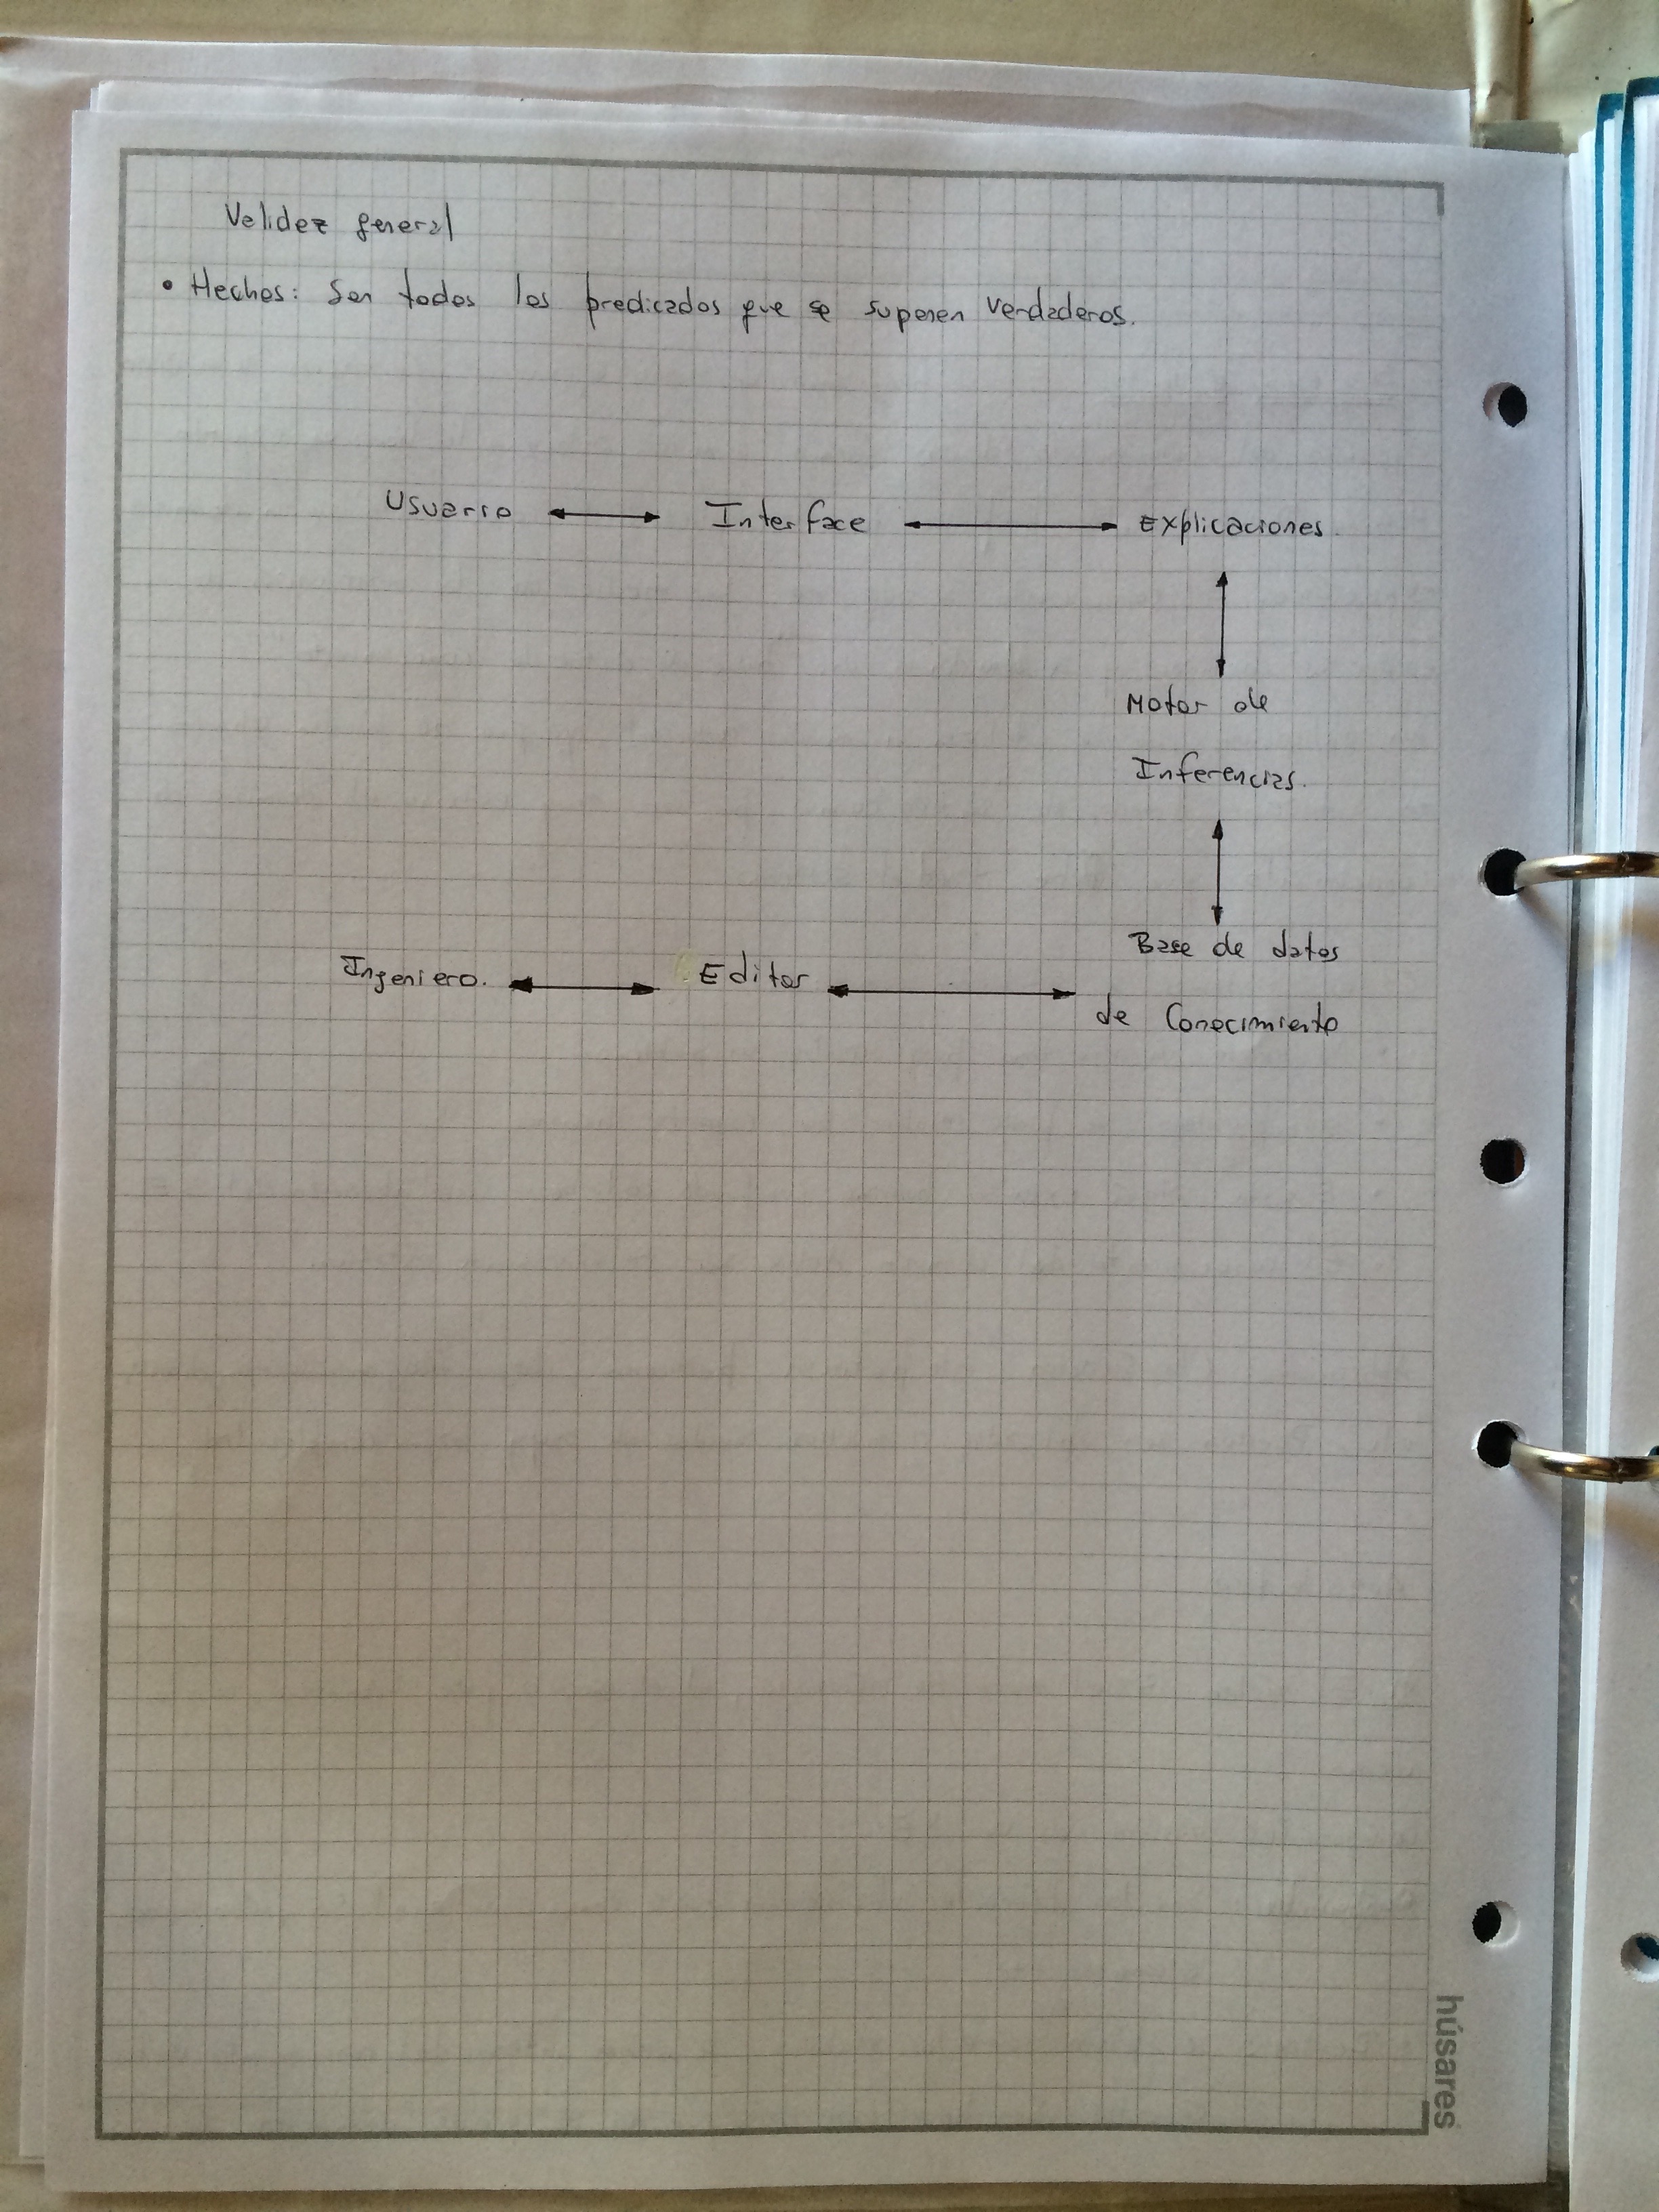 Validez general
• Hechos: Son todos los predicados que se suponen verdaderos.
Usuario Interface Explicaciones.
Motor de
Inferencias.
Base de datos
Ingeniero. Editor
de Conocimiento
húsares